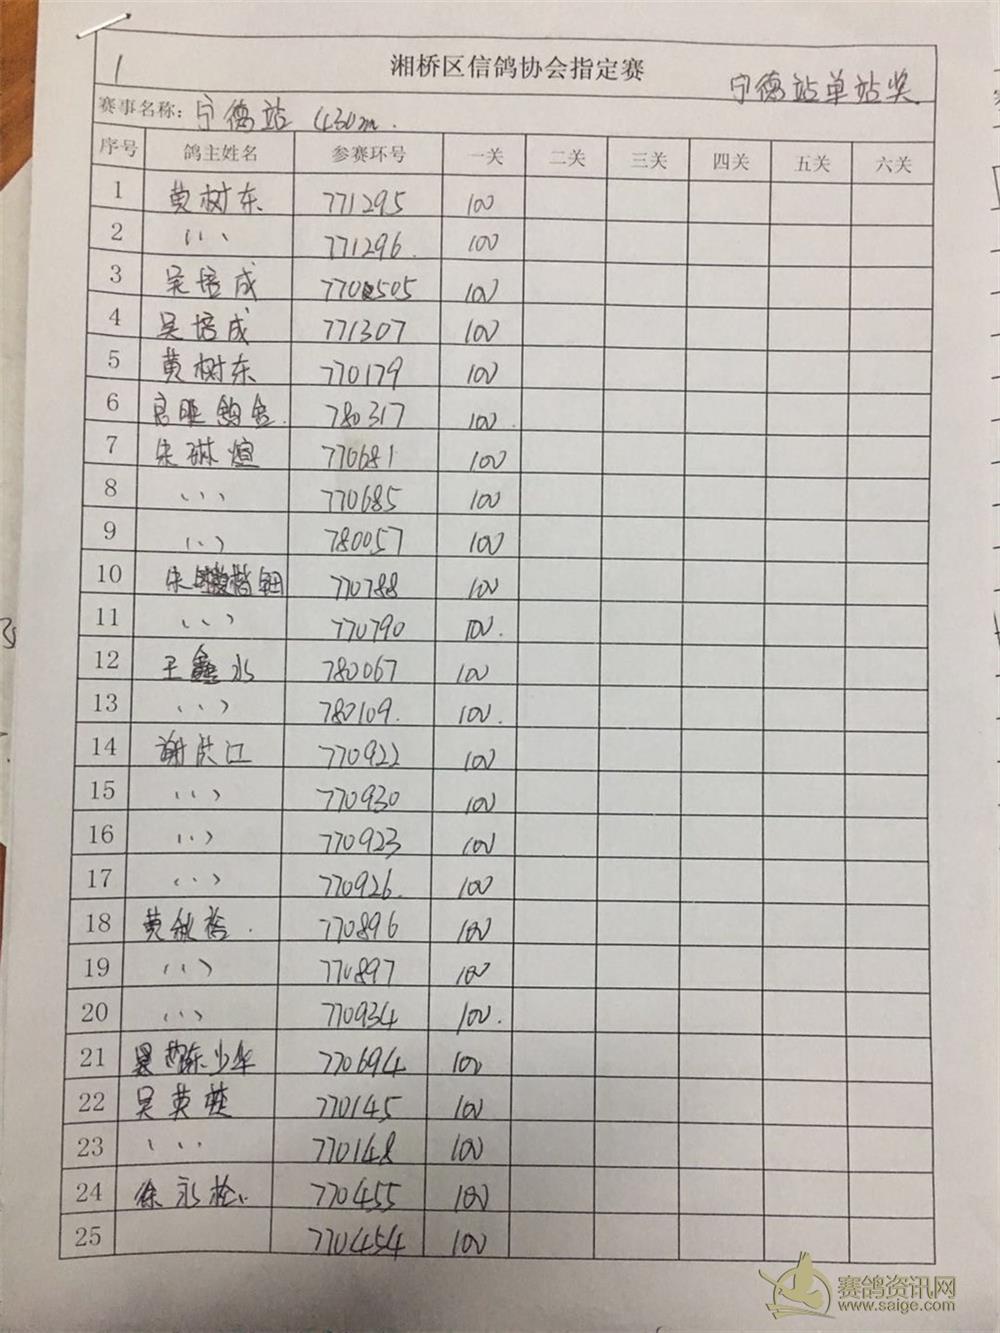 1
湘桥区信鸽协会指定赛
宁德站单站奖.
赛事名称: 宁德站 430m.
序号 鸽主姓名 参赛环号 一关 二关 三关 四关 五关 六关
1 黄树东 771295 100
2 、、、 771296. 100
3 吴培成 770505 100
4 吴培成 771307 100
5 黄树东 770179 100
6 鸽舍. 780317 100.
7 宋琳煊 770681 100
8 、、、 770685 100
9 、、、 780057 100
10 宋 770788 100
11 、、、 770790 100.
12 王鑫水 780067 100
13 、、、 780109. 100.
14 谢洪江 770922 100
15 、、、 770930 100
16 、、、 770923 100
17 、、、 770926. 100
18 黄 . 770896 100
19 、、、 770897 100
20 、、、 770934 100.
21 陈少华 770694 100
22 吴英楚 770145 100
23 、、、 770148 100
24 徐永松 770455 100
25 770454 100
赛鸽资讯网
www.saige.com